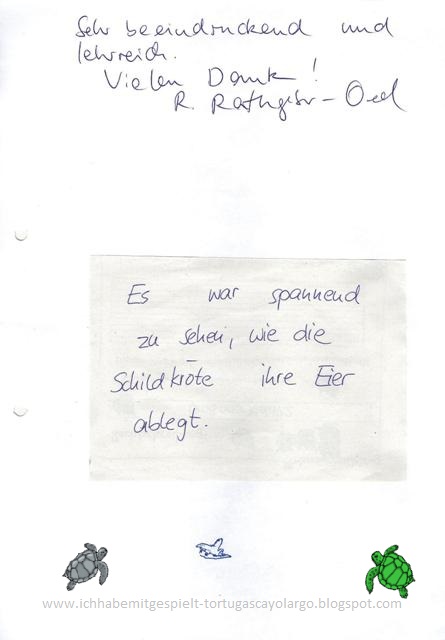 Sehr beeindruckend und
lehrreich.
Vielen Dank!
R. Rathgebr - Oed
Es war spannend
zu sehen, wie die
Schildkröte ihre Eier
ablegt.
www.ichhabemitgespielt-tortugascayolargo.blogspot.com